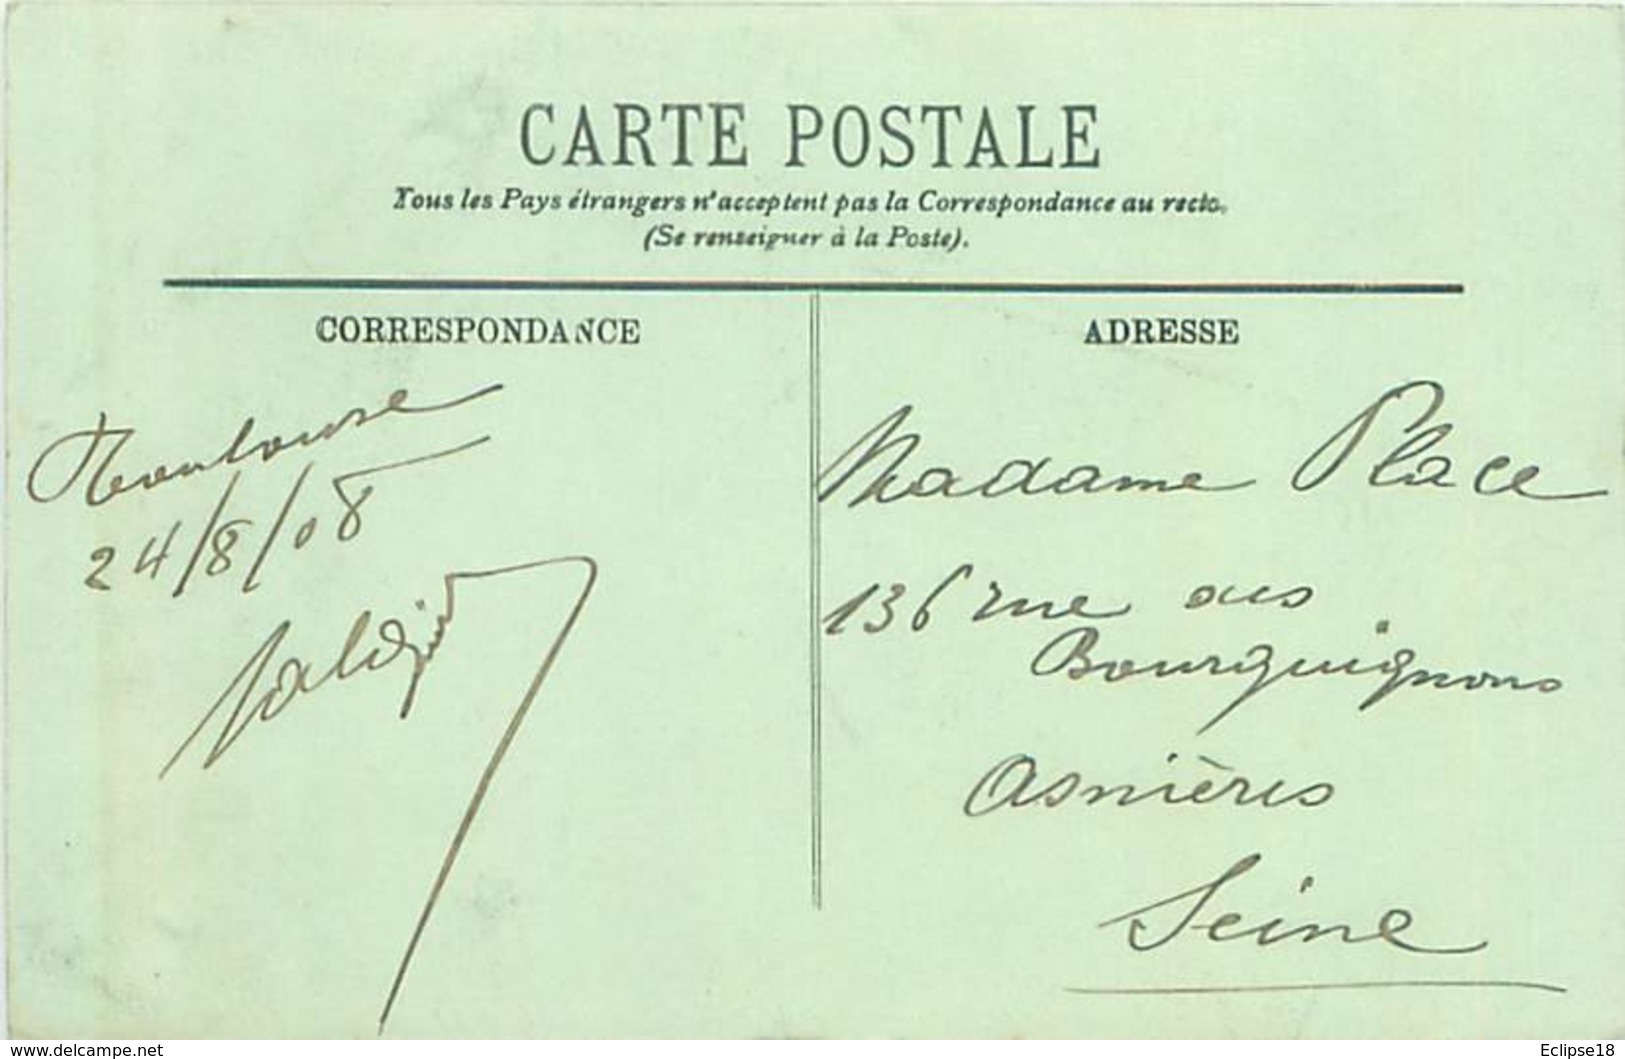 CARTE POSTALE
Tous les Pays étrangers n'acceptent pas la Correspondance au recto.
(Se renseigner à la Poste).
CORRESPONDANCE
Toulouse
24/8/08
ADRESSE
Madame Place
136 rue des
Bourguignons
Asnières
Seine
www.delcampe.net
Eclipse18